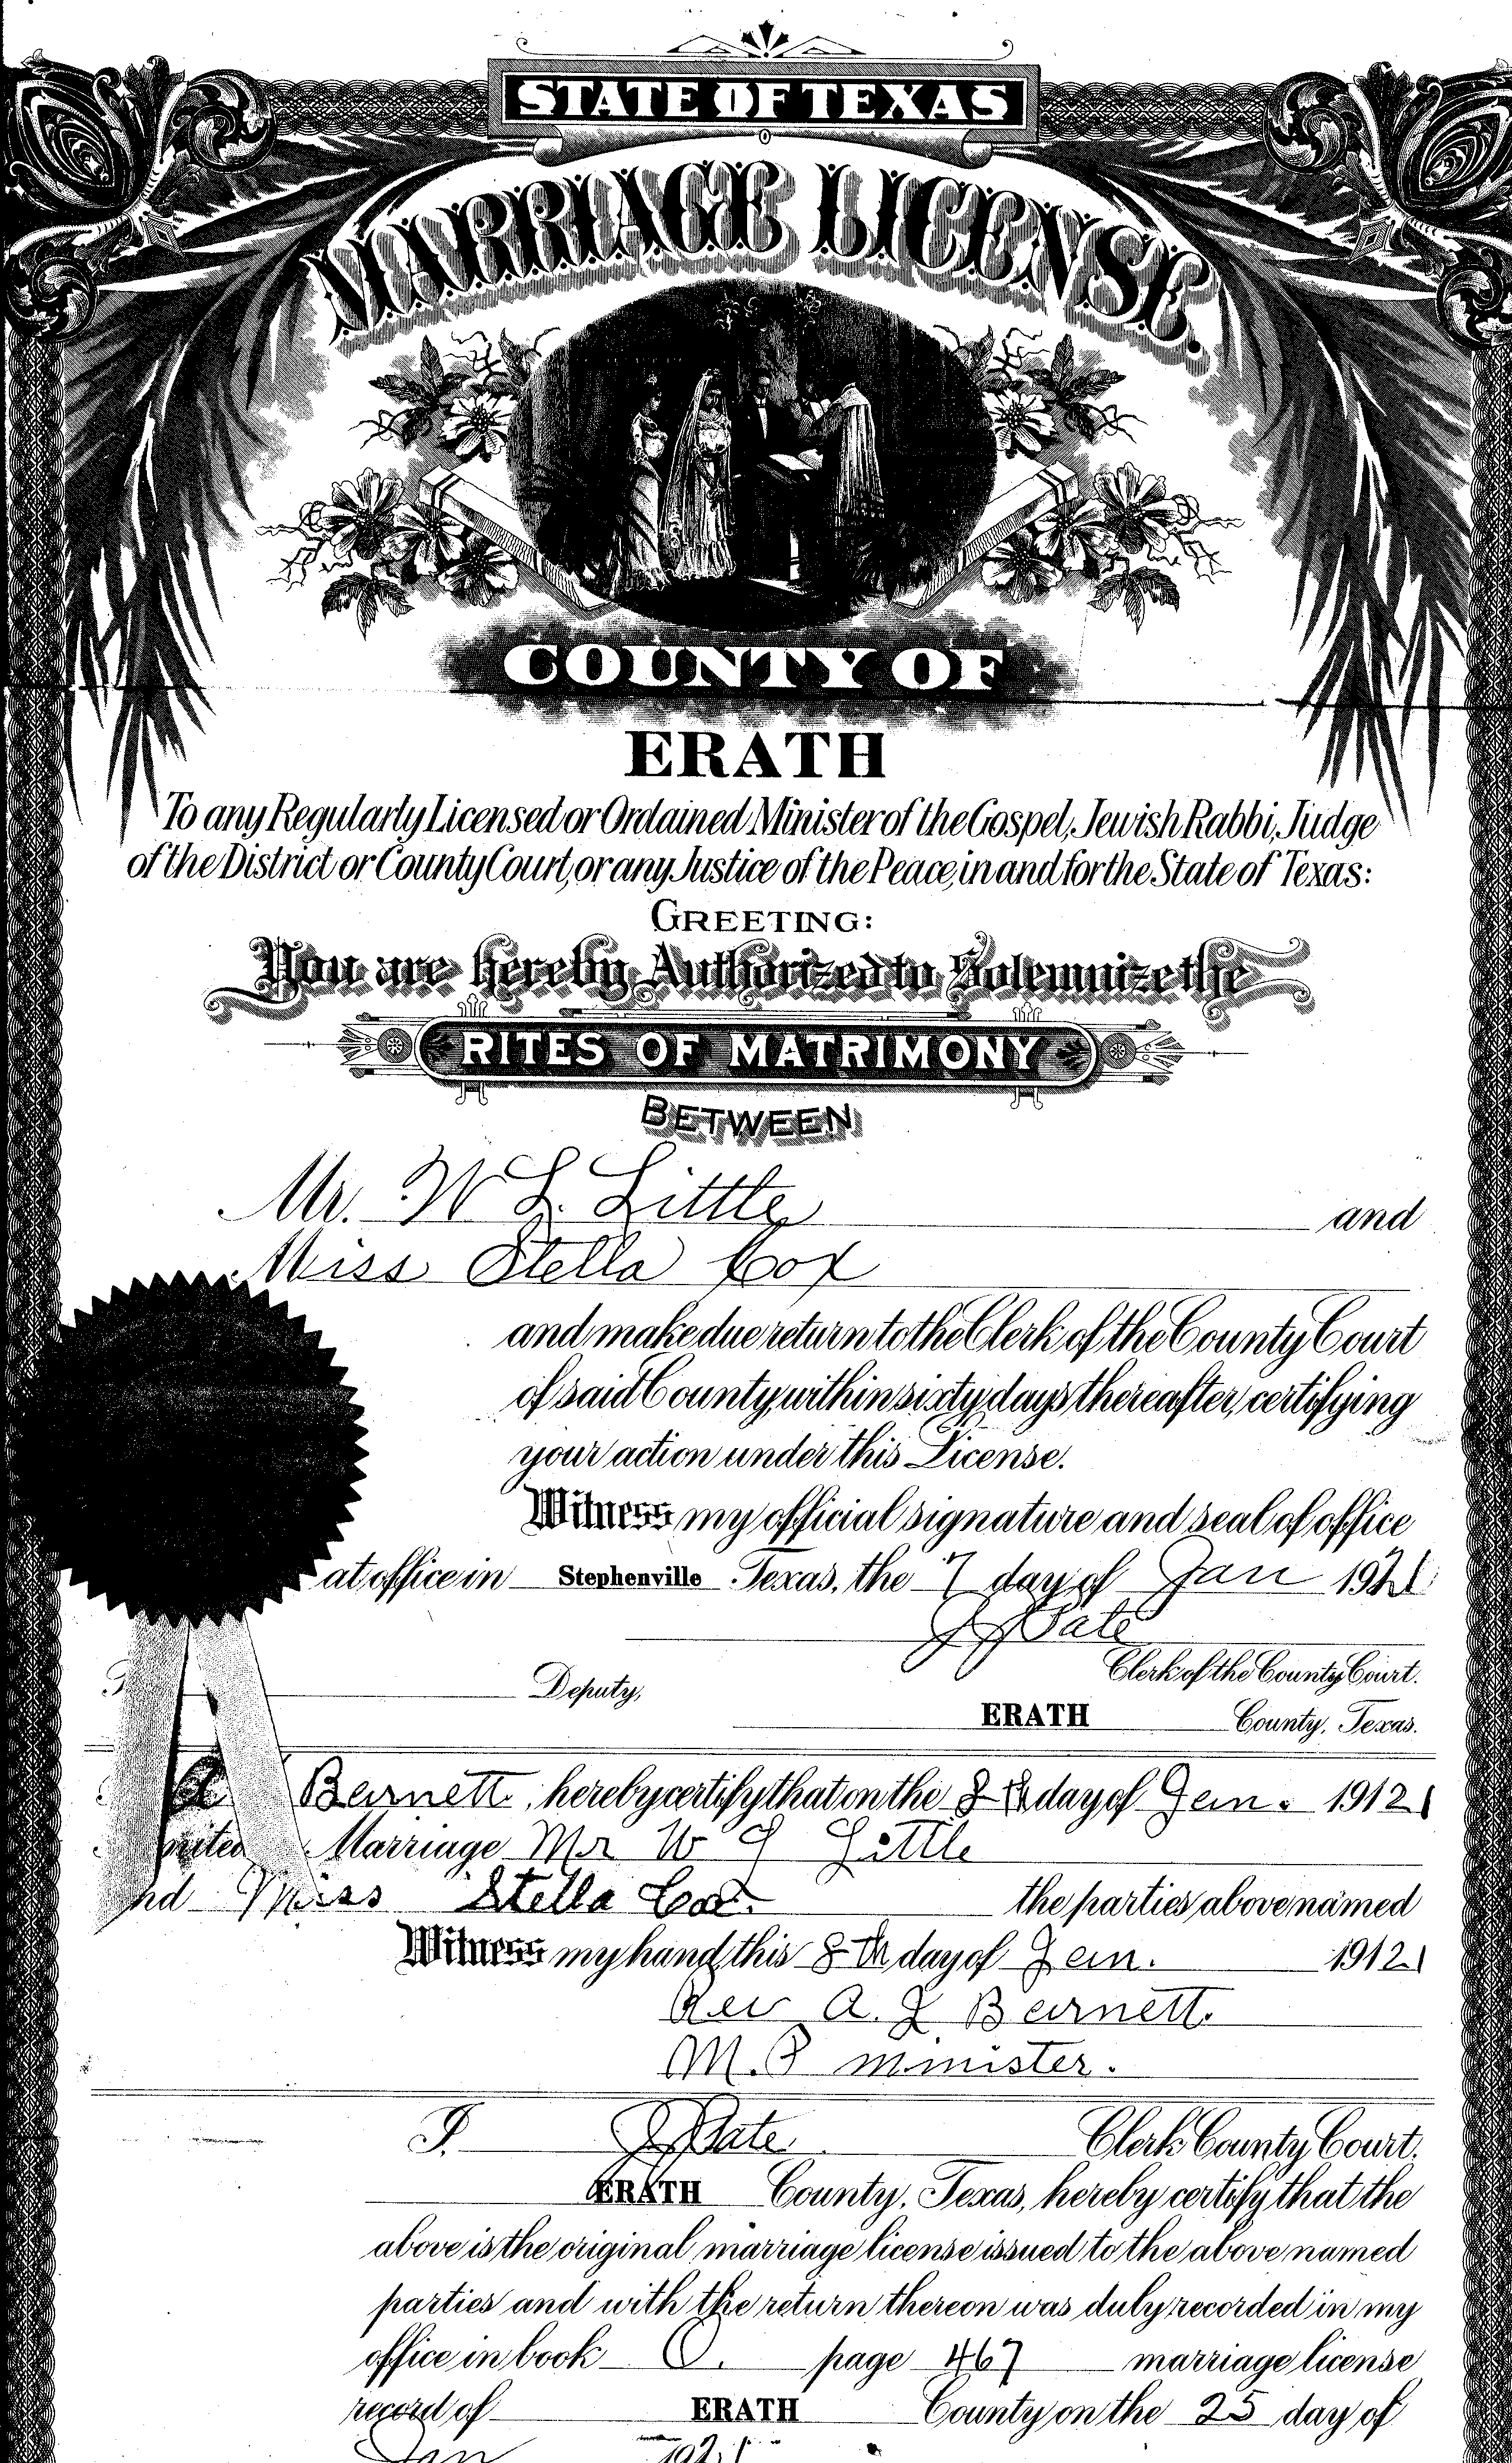 STATE OF TEXAS
MARRIAGE LICENSE.
COUNTY OF
ERATH
To any Regularly Licensed or Ordained Minister of the Gospel, Jewish Rabbi, Judge
of the District or County Court, or any Justice of the Peace, in and for the State of Texas:
GREETING:
You are hereby Authorized to Solemnize the
RITES OF MATRIMONY
BETWEEN
Mr. W L. Little and
Miss Stella Cox
and make due return to the Clerk of the County Court
of said County, within sixty days thereafter, certifying
your action under this License.
Witness my official signature and seal of office
at office in Stephenville Texas, the 7 day of Jan 1921
Pate
Clerk of the County Court.
Deputy,
ERATH County, Texas.
Barnett, hereby certify that on the 8th day of Jan. 1921
Marriage Mr W L Little
nd Miss Stella Cox the parties above named
Witness my hand, this 8th day of Jan. 1921
Rev A. J Barnett.
M. P minister.
I. Pate Clerk County Court.
ERATH County, Texas, hereby certify that the
above is the original marriage license issued to the above named
parties and with the return thereon was duly recorded in my
office in book O. page 467 marriage license
record of ERATH County on the 25 day of
Jan 1921